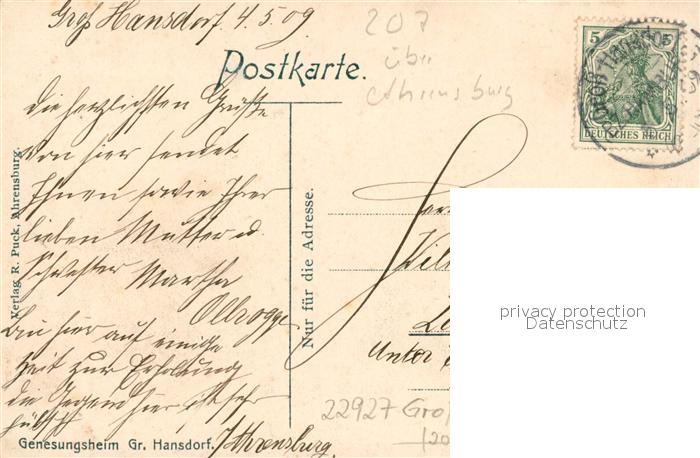 Groß Hansdorf. 4.5.09.
207
über
Ahrensburg
Postkarte.
5 5
DEUTSCHES REICH
Die herzlichsten Grüße
von hier sendet
Ihnen sowie Ihrer
lieben Mutter u.
Schwester Martha
Ollrogge
Bin hier auf einige
Zeit zur Erholung
die Gegend hier ist sehr
hübsch
Verlag R. Puck, Ahrensburg.
Nur für die Adresse.
Unter
22927 Groß
(20
Genesungsheim Gr. Hansdorf. / Ahrensburg.
privacy protection
Datenschutz